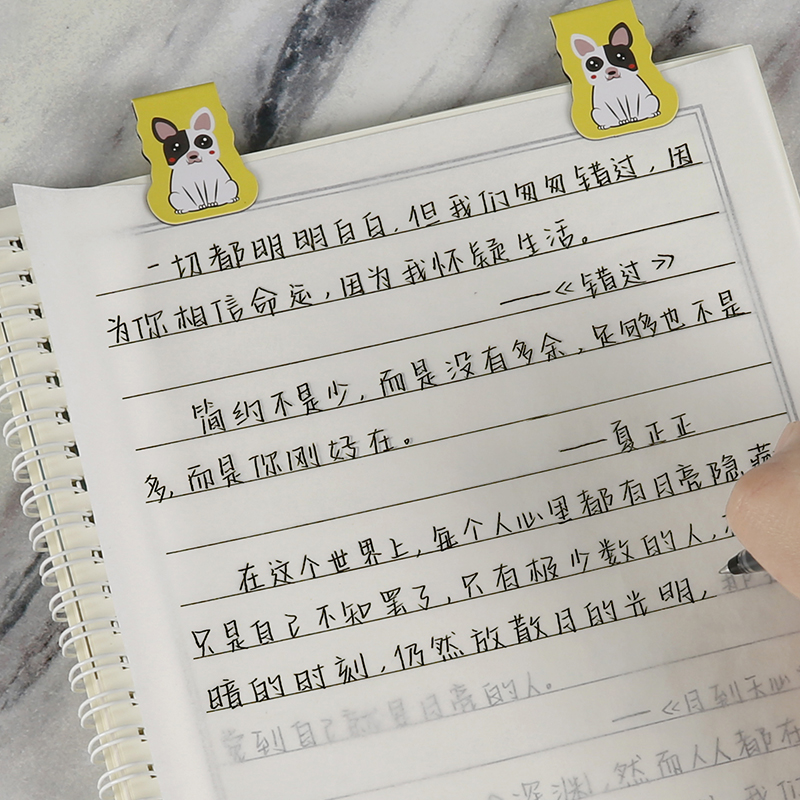 一切都明明白白,但我们匆匆错过,因
为你相信命运,因为我怀疑生活。
——《错过》
简约不是少,而是没有多余,足够也不是
多,而是你刚好在。
——夏正正
在这个世界上,每个人心里都有月亮隐藏
只是自己不知罢了,只有极少数的人,
暗的时刻,仍然放散月的光明,
觉到自己就是月亮的人。
——《月到天心
深渊,然而人人都在